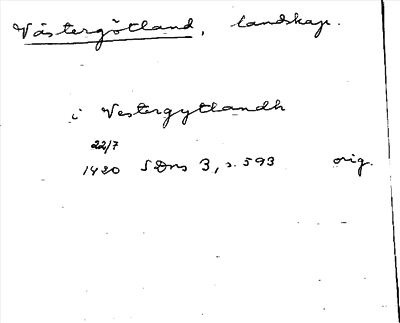 Västergötland, landskap.
i Vestergytlandh
22/7
1420 SDns 3, s. 593 orig.